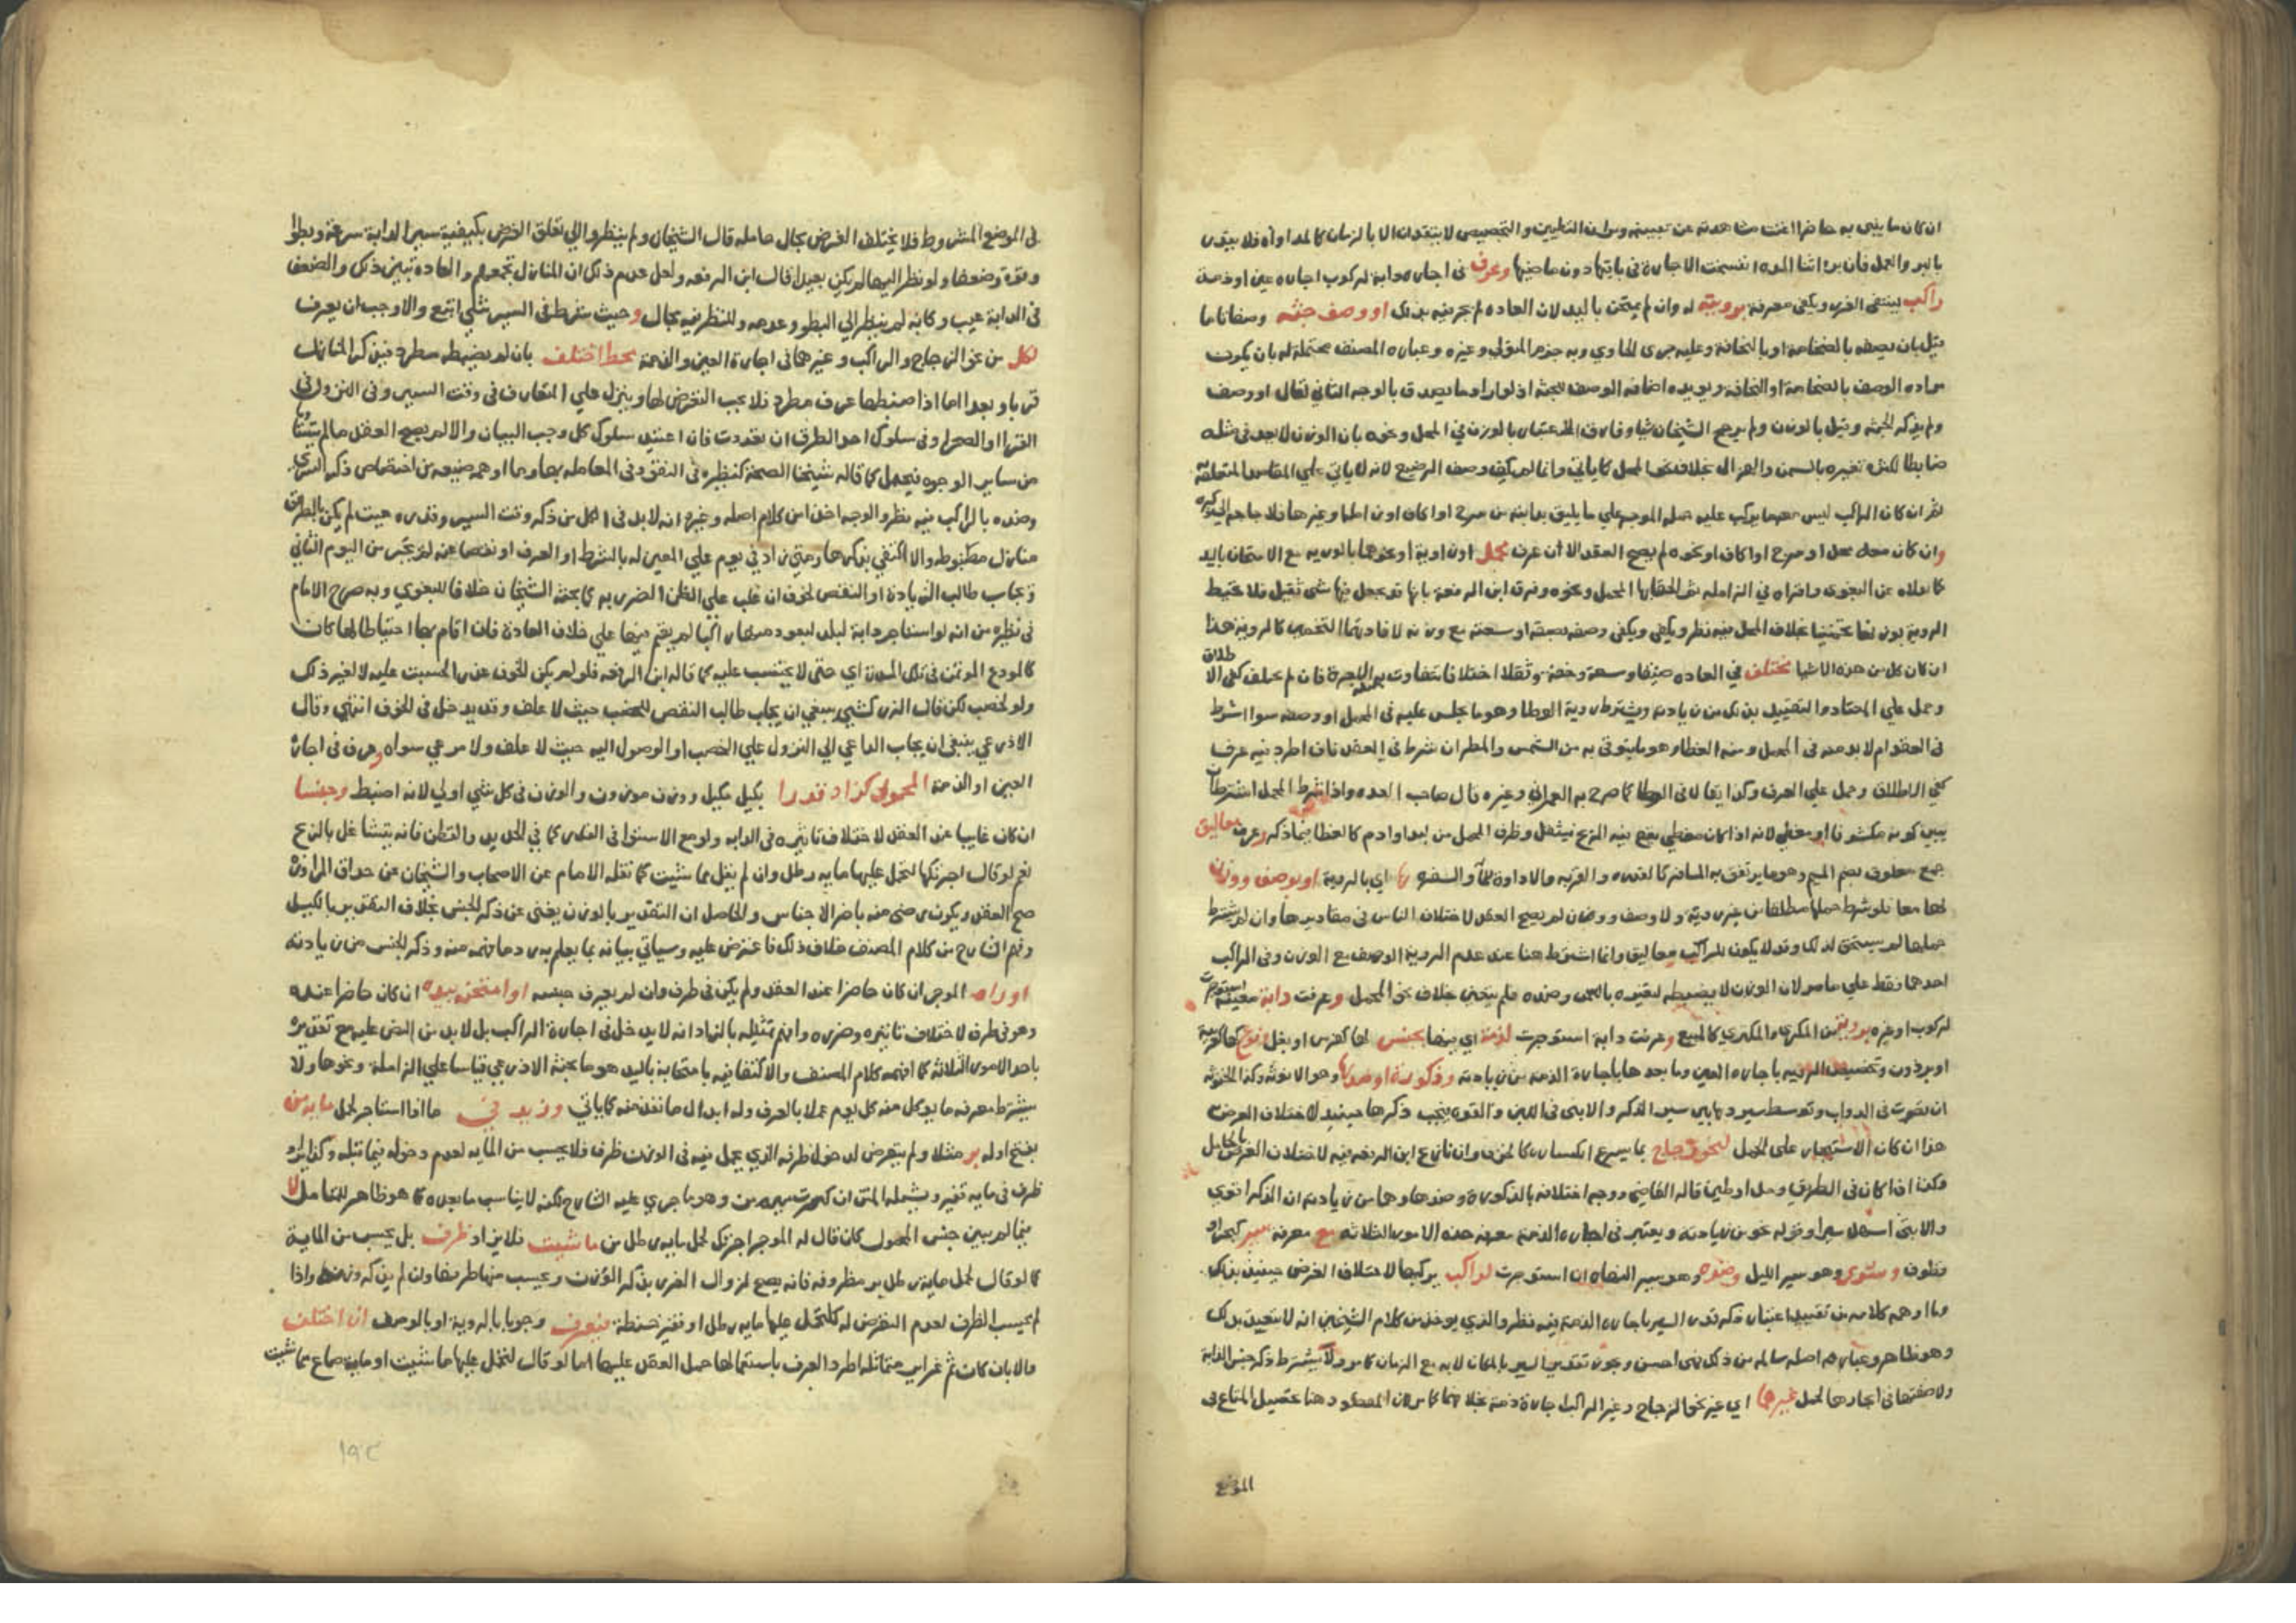 ان كان ما يبنى به حاضرا اغنت مشاهدته عن تبيينه وان التطيين والتجصيص لا يتقدران الا بالزمان
بالبر والعمل فان برا اثنا المده انفسخت الاجارة في باقيها دون ماضيها وعرف في اجارة دابة لركوب اجاره عين او ذمة
راكب لينتفي الغرر ويكفي معرفة برويته له وان لم يمتحن باليد لان العاده لم تجر فيه بذلك او وصف جثته وصفا تاما
قيل بان يصفه بالضخامة او بالنحافة وعليه جرى الحاوي وبه جزم المتولي وغيره وعبارة المصنف محتملة له بان يكون
مراده الوصف بالضخامة او النحافة ويويده اضافة الوصف للجثة اذ لو اراد ما يصدق بالوجه الثاني لقال او وصف
ولم يذكر الجثة وقيل بالوزن ولم يرجح الشيخان شيا وفارق اعتبار بالوزن في المحمل ونحوه بان الوزن لا يعد في مثله
ضابطا لكثرة تغيره بالسمن والهزال بخلاف نحو المحمل كما ياتي وانما لم يكف وصف الرضيع لانه لا ياتي على المقاصد المتعلقة
نعم ان كان الراكب ليس معه ما يركب عليه حمله الموجر على ما يليق بدابته من سرج او اكاف او زاملة او غيرها فلا حاجة الى ذكره
وان كان معه محمل او سرج او اكاف او نحوه لم يصح العقد الا ان عرف محمل او زاملة او نحوهما بالرويه مع الامتحان باليد
كما نقلاه عن البغوي واقراه في الزاملة ثم الحقا بها المحمل ونحوه وفرق ابن الرفعة بانها قد يجعل فيها شي ثقيل فلا تحيط
الروية بوزنها بخلاف المحمل فيه نظر ويكفي وصفه بضيقه او سعته مع وزنه لافادتهما التخمين كالروية هذا
ان كان كل من هذه الاشيا يختلف في العاده ضيقا وسعة وخفة وثقلا اختلافا تتفاوت به الاجرة فان لم يختلف كفى الاطلاق
وحمل على المعتاد والتقييد بذلك من زيادته ويشترط روية الوطا وهو ما يجلس عليه في المحمل او وصفه سوا اشرط
في العقد ام لا بد منه في المحمل ومنه الغطا وهو ما يتوقى به من الشمس والمطر ان شرط في العقد فان اطرد فيه عرف
كفى الاطلاق وحمل على العرف وكذا يقال في الوطا كما صرح به العمراني وغيره قال صاحب العده واذا شرط المحمل اشترط ان
يبين كونه مكشوفا او مغطى لانه اذا كان مغطى يقع فيه الريح فيثقل وظرف المحمل من لبد او ادم كالغطا فيما ذكر وعرف معاليق
جمع معلوق بضم الميم وهو ما يرتفق به المسافر كالقدر والقربة والاداوة للماء والسفره اي بالروية او بوصف ووزن
لها معا فلو شرط حملها مطلقا من غير روية ولا وصف ووزن لم يصح العقد لاختلاف الناس في مقاديرها وان لم يشترط
حملها لم يستحق لذلك وقد لا يكون للراكب معاليق وانما اشترط هنا عند عدم الروية الوصف مع الوزن وفي الراكب
احدهما فقط على ما مر لان الوزن لا يضبطه لتغيره بالسمن وضده فلم يتعين بخلاف نحو المحمل وعرفت دابة معينة استوجرت
لركوب او غيره بروية من المكري والمكتري كالمبيع وعرفت دابة استوجرت لذمة اي فيها بجنس لها كفرس او بغل ونوع لها كعربية
او برذون وتخصيص الرويه باجارة العين وما بعدها باجارة الذمة من زيادته وذكورة او ضدها وهو الانوثة وكذا الخنوثة
ان تصوت في الدواب وتوسط سير وما بين سير الذكر والانثى في اللين والقوة فيجب ذكرها حينئذ لاختلاف الغرض
هذا ان كان الاستيجار على الحمل لنحو زجاج بما يسرع انكساره كالخزف وان نازع ابن الرفعة فيه لاختلاف الغرض بالحامل
وكذا اذا كان في الطريق وحل او طين قاله القاضي ووجه اختلافه بالذكورة وضدها وهما من زيادته ان الذكر اقوى
والانثى اسهل سيرا وقوله نحو من زيادته ويعتبر في اجارة الذمة معرفة هذه الامور الثلاثة مع معرفة سير كبحر او
قطوف وسرى وهو سير الليل وضده وهو سير النهار ان استوجرت لراكب يركبها لاختلاف الغرض حينئذ بذلك
وما اوهمه كلامه من تقييد اعتبار ذكر قدر السير باجارة الذمة فيه نظر والذي يوخذ من كلام الشيخين انه لا يتقيد بذلك
وهو ظاهر وعبارة اصله سالمة من ذلك فهي احسن ويجوز تقدير السير بالمكان لا به مع الزمان كما مر ولا يشترط ذكر جنس الدابة
ولا صفتها في اجارتها لحمل غيرهما اي غير نحو الزجاج وغير الراكب اجارة ذمة بخلافهما كما مر لان المقصود هنا تحصيل المتاع في
الموضع
في الموضع المشروط فلا يختلف الغرض بحال حامله قال الشيخان ولم ينظروا الى تعلق الغرض بكيفية سير الدابة سرعة وبطوا
وقوة وضعفا ولو نظر اليها لم يكن بعيدا قال ابن الرفعة ولعل عدم ذلك ان المنازل تجمعهم والعادة تبين ذلك والضعف
في الدابة عيب وكانه لم ينظر الى البطو وعدمه وللنظر فيه مجال وحيث شرط في السير شي اتبع والاوجب ان يعرف
لكل من نحو الزجاج والراكب وغيرهما في اجارة العين والذمة محط اختلف بان لم يضبطه مطرد فيذكر المنازل
قربا وبعدا اما اذا ضبطها عرف مطرد فلا يجب التعرض لها وينزل على المتعارف في وقت السير وفي النزول في
القرى او الصحرا وفي سلوك احد الطرق ان تعددت فان اعتيد سلوك كل وجب البيان والا لم يصح العقد ما لم يتفقا
من ساير الوجوه فيحمل كما قاله شيخنا الصحة كنظيره في النقود في المعاملة بها وما اوهمه صنيعه من اختصاص ذكر السرى
وضده بالراكب فيه نظر والوجه اخذا من كلام اصله وغيره انه لا بد في الكل من ذكر وقت السير وقدره حيث لم يكن بالطريق
منازل مضبوطة والا اكتفي بذكرها ومتى زاد في يوم على المعين له بالشرط او العرف او نقصا عنه لم يجبر من اليوم الثاني
ويجاب طالب الزيادة او النقص لخوف ان غلب على الظن الضرر به كما بحثه الشيخان خلافا للبغوي وبه صرح الامام
في نظيره من انه لو استاجر دابة لبلد ليعود منها راكبا لم يقم فيها على خلاف العادة فان اقام بها احتياطا لها كان
كالمودع الموتمن في تلك المدة اي حتى لا يحتسب عليه كما قاله ابن الرفعة فلو لم يكن الخوف عذرا لحسبت عليه لا لغير ذلك
ولو لخصب لكن قال الزركشي ينبغي ان يجاب طالب النقص للخصب حيث لا علف وقد يدخل في الخوف انتهى وقال
الاذرعي ينبغي ان يجاب الداعي الى النزول على الخصب او الوصول اليه حيث لا علف ولا مرعى سواه وعرف في اجارة
العين او الذمة المحمول كزاد قدرا بكيل مكيل ووزن موزون والوزن في كل شي اولى لانه اضبط وجنسا
ان كان غايبا عند العقد لاختلاف تاثيره في الدابه ولو مع الاستوا في القدر كما في الحديد والقطن فانه يتثاقل بالريح
نعم لو قال اجرتكها لتحمل عليها مايه رطل وان لم يقل مما شيت كما نقله الامام عن الاصحاب والشيخان عن حذاق المراوزة
صح العقد ويكون رضى منه باضر الاجناس والحاصل ان التقدير بالوزن يغني عن ذكر الجنس بخلاف التقدير بالكيل
وفهم الشارح من كلام المصنف خلاف ذلك فاعترض عليه وسياتي بيانه بما يعلم به رد ما فهمه منه وذكر الجنس من زيادته
او راه الموجر ان كان حاضرا عند العقد ولم يكن في ظرف وان لم يعرف جنسه او امتحنه بيده ان كان حاضرا عنده
وهو في ظرف لاختلاف تاثيره وضرره وافهم تمثيله بالزاد انه لا يدخل في اجارة الراكب بل لا بد من النص عليه مع تقديره
باحد الامور الثلاثة كما افهمه كلام المصنف والاكتفا فيه بامتحانه باليد هو ما بحثه الاذرعي قياسا على الزاملة ونحوها ولا
يشترط معرفة ما يوكل منه كل يوم عملا بالعرف وله ابدال ما نفد منه كما ياتي وزيد في ما اذا استاجر لحمل مايه من
بفتح اوله بر مثلا ولم يتعرض لدخول ظرفه الذي يحمل فيه في الوزن ظرف فلا يحسب من المايه لعدم دخوله فيما قبله وكذا يزاد
ظرف في مايه قفيز ويشمله المتن ان كسرت ميم من وهو ما جرى عليه الشارح لكنه لا يناسب ما بعده كما هو ظاهر للمتامل لا
فيما لم يبين جنس المحمول كان قال له الموجر اجرتك لحمل مايه رطل من ما شيت فلا يزاد ظرف بل يحسب من الماية
كما لو قال لحمل مايه رطل بر مظروفة فانه يصح لزوال الغرر بذكر الوزن ويحسب منها ظرفها وان لم يذكر وزنه واذا
لم يحسب الظرف لعدم التعرض له كلتحمل عليها مايه رطل او قفيز حنطة فيعرف وجوبا بالروية او بالوصف ان اختلف
والا بان كان ثم غراير متماثلة اطرد العرف باستعمالها حمل العقد عليها اما لو قال لتحمل عليها ما شيت او ماية صاع مما شيت
١٩٢